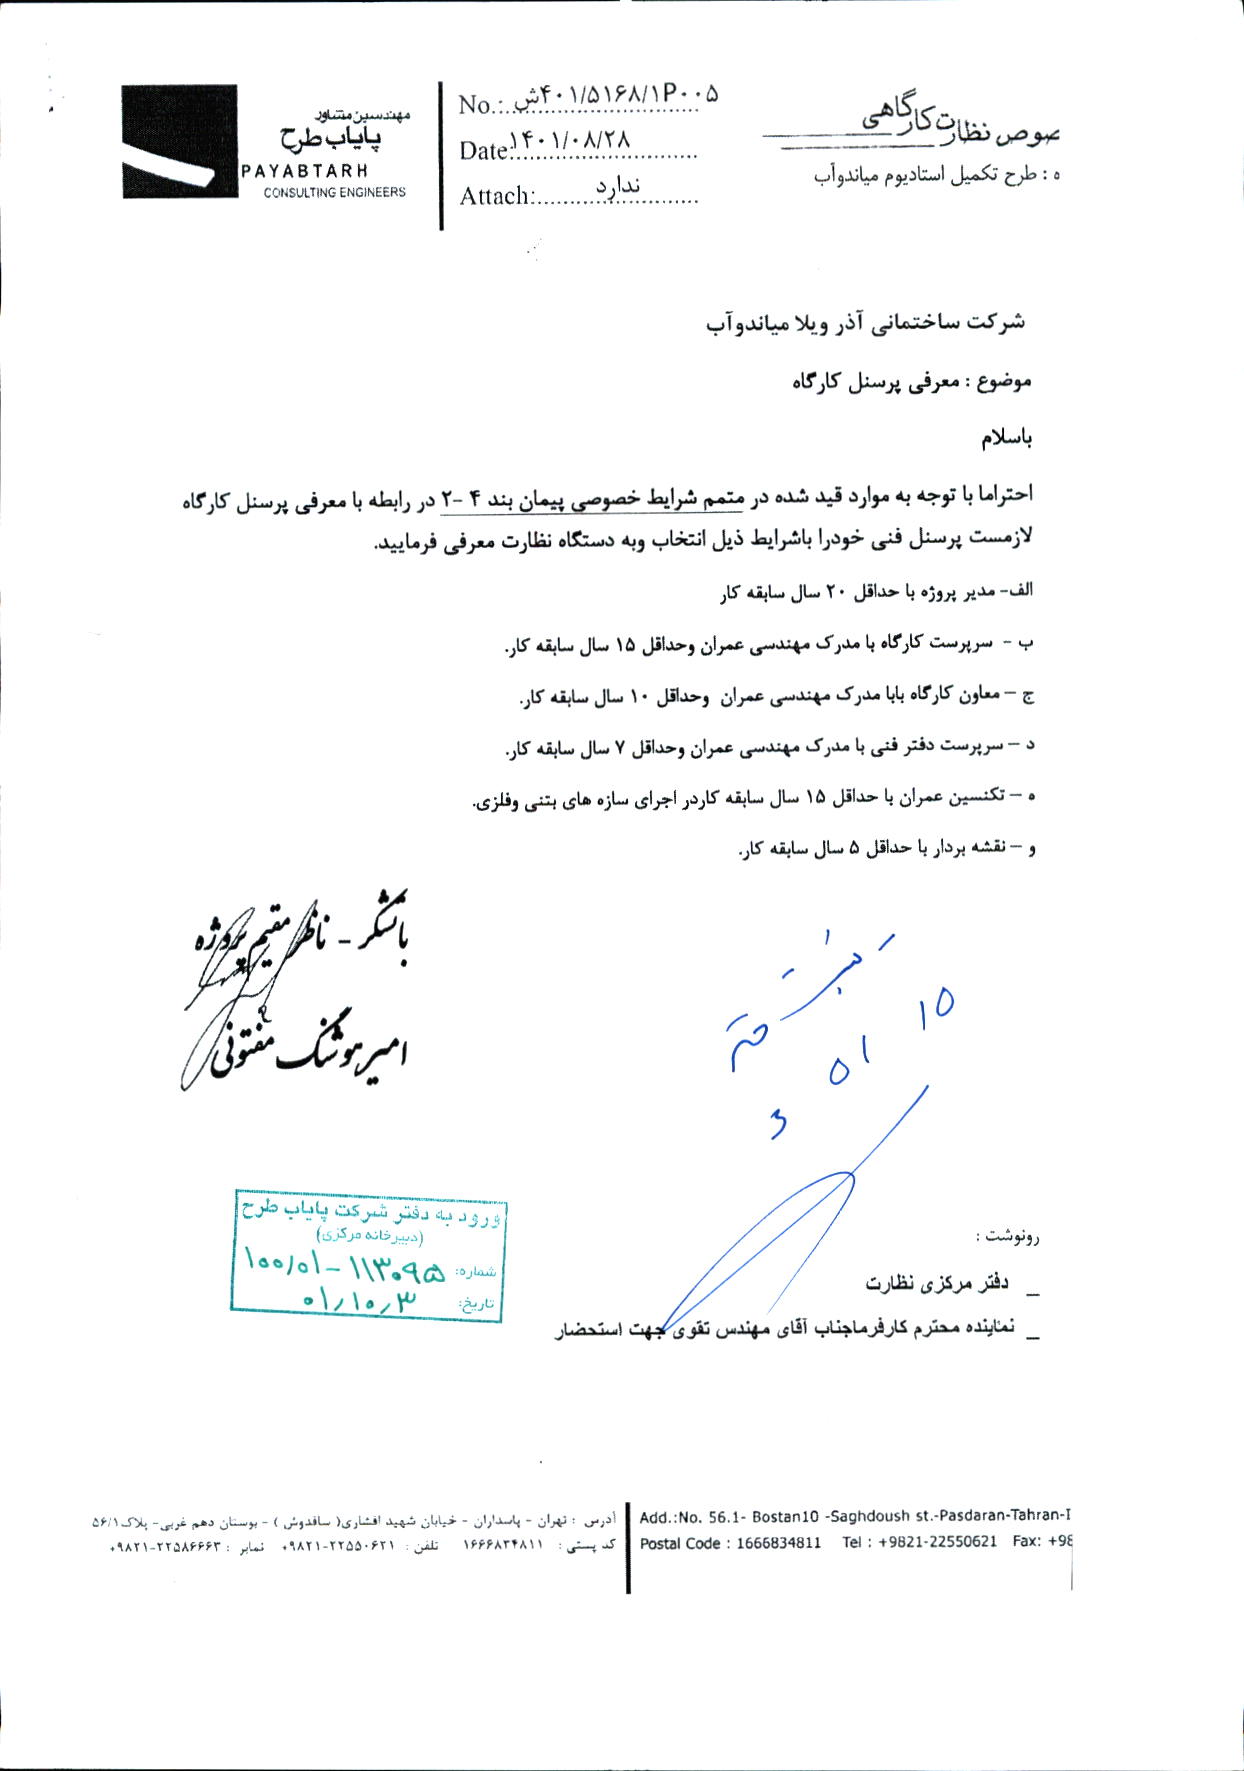 مهندسین مشاور
پایاب طرح
PAYABTARH
CONSULTING ENGINEERS
No.: ش۴۰۱/۵۱۶۸/۱P۰۰۵
Date: ۱۴۰۱/۰۸/۲۸
Attach: ندارد
صوص نظارت کارگاهی
ه : طرح تکمیل استادیوم میاندوآب
شرکت ساختمانی آذر ویلا میاندوآب
موضوع : معرفی پرسنل کارگاه
باسلام
احتراما با توجه به موارد قید شده در متمم شرایط خصوصی پیمان بند ۴ -۲ در رابطه با معرفی پرسنل کارگاه
لازمست پرسنل فنی خودرا باشرایط ذیل انتخاب وبه دستگاه نظارت معرفی فرمایید.
الف- مدیر پروژه با حداقل ۲۰ سال سابقه کار
ب - سرپرست کارگاه با مدرک مهندسی عمران وحداقل ۱۵ سال سابقه کار.
ج – معاون کارگاه بابا مدرک مهندسی عمران وحداقل ۱۰ سال سابقه کار.
د – سرپرست دفتر فنی با مدرک مهندسی عمران وحداقل ۷ سال سابقه کار.
ه – تکنسین عمران با حداقل ۱۵ سال سابقه کاردر اجرای سازه های بتنی وفلزی.
و – نقشه بردار با حداقل ۵ سال سابقه کار.
باتشکر - ناظر مقیم پروژه
امیرهوشنگ مفتونی
ورود به دفتر شرکت پایاب طرح
(دبیرخانه مرکزی)
شماره: ۱۰۰/۰۱-۱۱۳۰۹۵
تاریخ: ۰۱/۱۰/۳
رونوشت :
_ دفتر مرکزی نظارت
_ نماینده محترم کارفرماجناب آقای مهندس تقوی جهت استحضار
آدرس : تهران - پاسداران - خیابان شهید افشاری( ساقدوش ) - بوستان دهم غربی- پلاک۵۶/۱
کد پستی : ۱۶۶۶۸۳۴۸۱۱ تلفن : ۲۲۵۵۰۶۲۱-۰۹۸۲۱ نمابر : ۲۲۵۸۶۶۶۳-۰۹۸۲۱
Add.:No. 56.1- Bostan10 -Saghdoush st.-Pasdaran-Tahran-I
Postal Code : 1666834811 Tel : +9821-22550621 Fax: +98